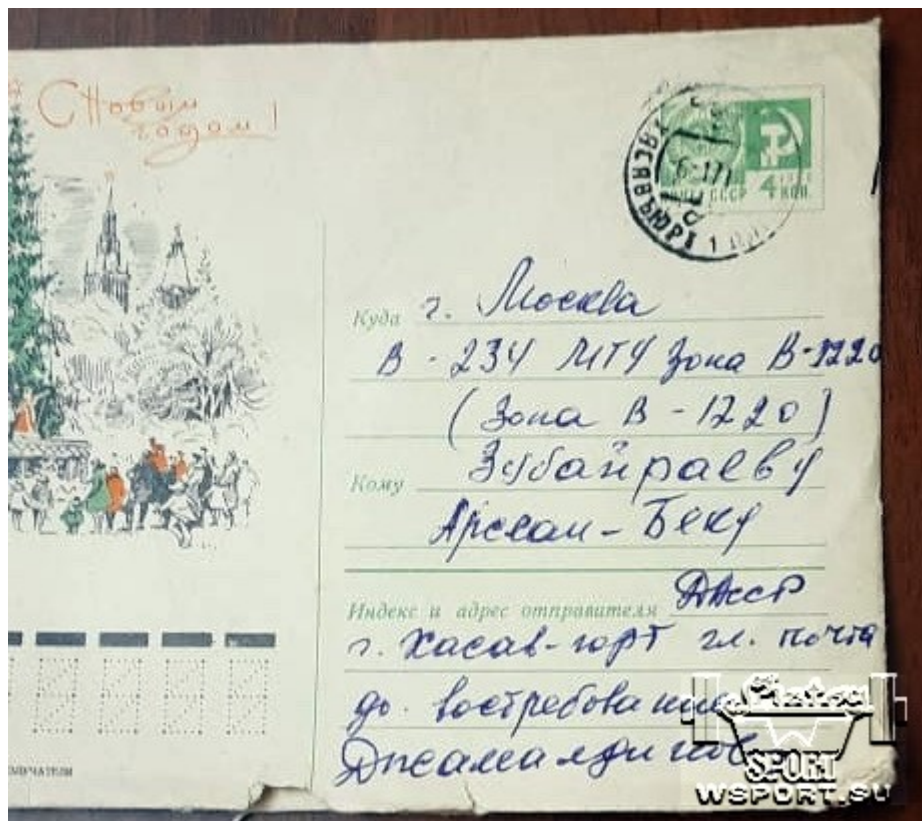 С Новым
годом!
ХАСАВЪЮРТ
ПОЧТА СССР 4 КОП
Куда г. Москва
В - 234 МГУ Зона В-1220
(Зона В - 1220)
Кому Зубайраеву
Арслан - Беку
Индекс и адрес отправителя ДАССР
г. Хасав-юрт гл. почта
до. востребование
Джамалдинов
SPORT
WSPORT.SU